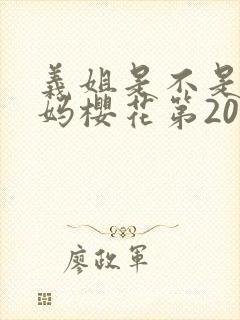 義姐是不是
妈樱花第20
廖政軍